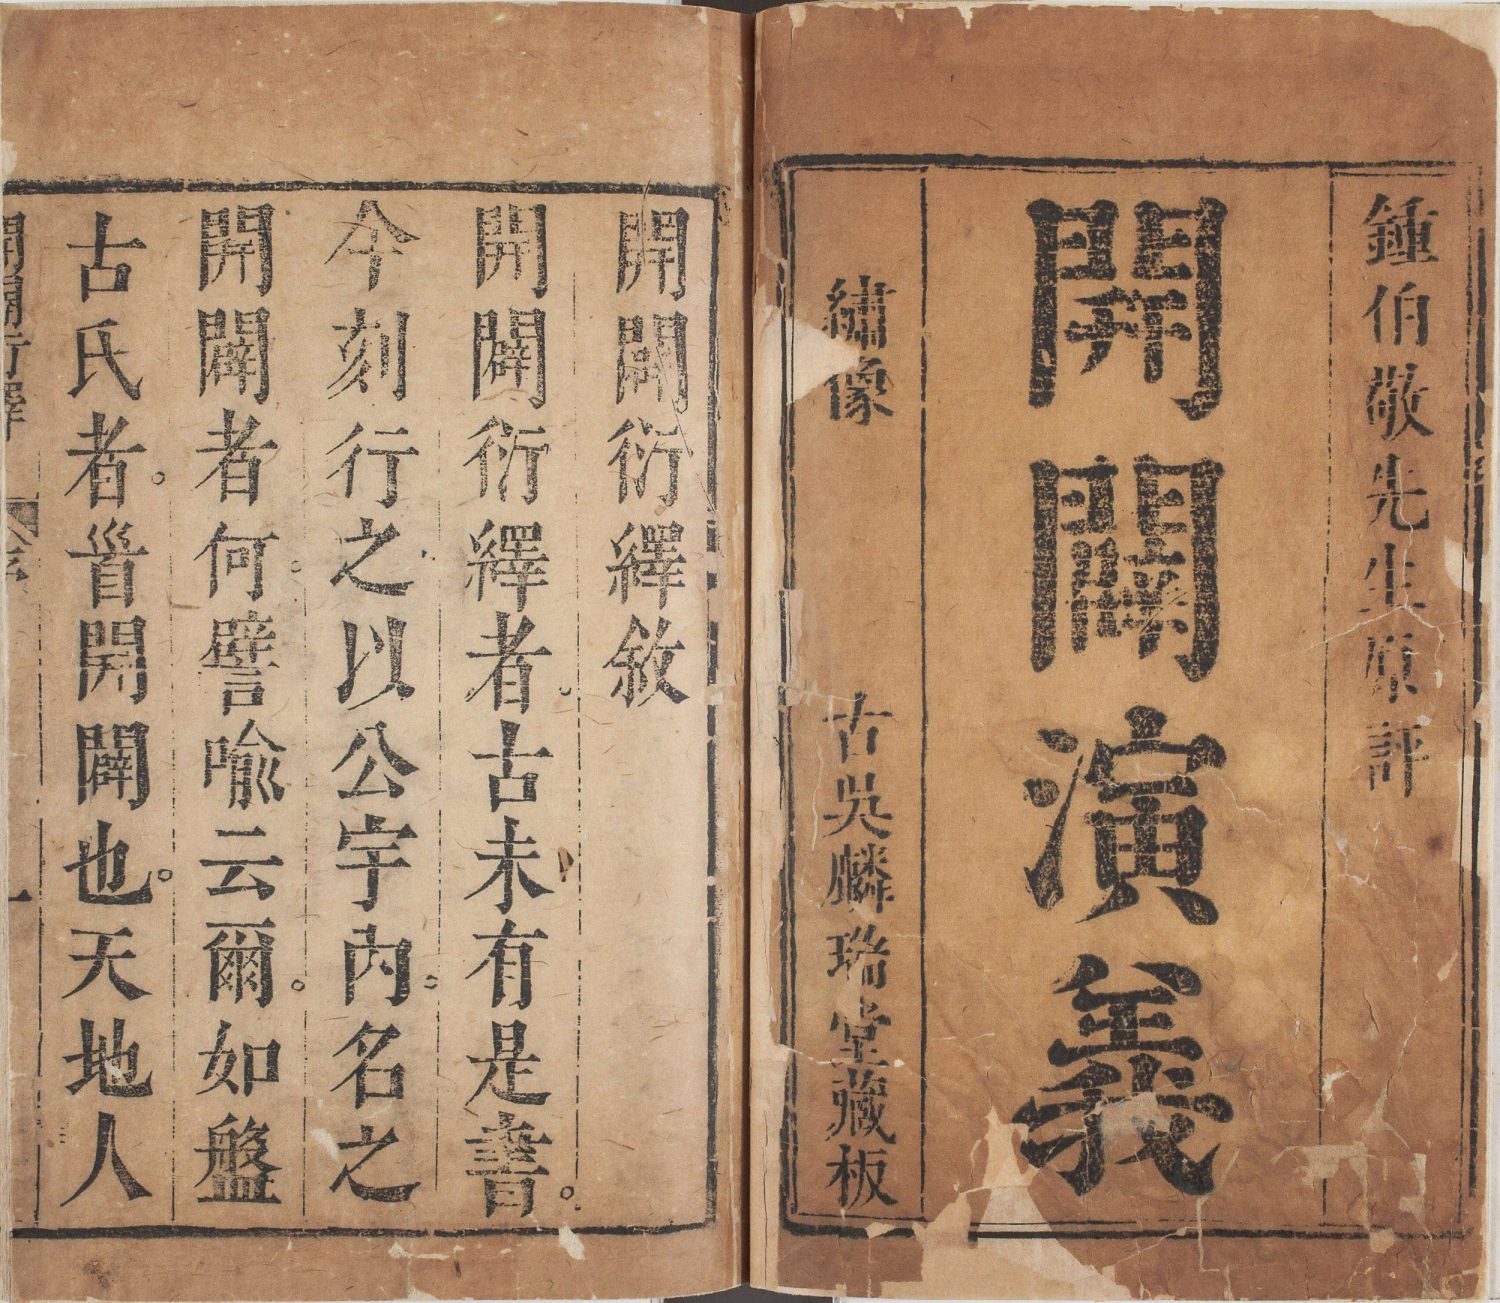 鍾伯敬先生原評
開闢演義
繡像　古吳麟瑞堂藏板
開闢衍繹敘
開闢衍繹者。古未有是書。
今刻行之以公宇內。名之
開闢者。何譬喻云爾。如盤
古氏者。首開闢也。天地人
開闢衍繹　序　一